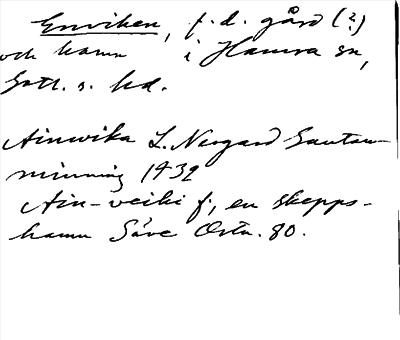 Enviken, f.d. gård (?)
och hamn i Hamra sn,
Gotl. s. hd.
Ainwika L. Nergard Gautau-
minning 1432
Ain-veiki f., en skepps-
hamn Säve Ortn. 80.